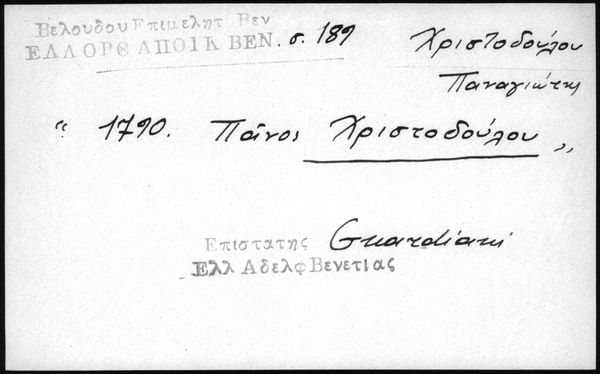 Βελουδου Επιμελητ Βεν
ΕΛΛΟΡΘ ΑΠΟΙΚ ΒΕΝ. σ. 189
Χριστοδούλου
Παναγιώτης
“ 1790. Πᾶνος Χριστοδούλου „
Επιστατης Guardiani
Ελλ Αδελφ Βενετίας